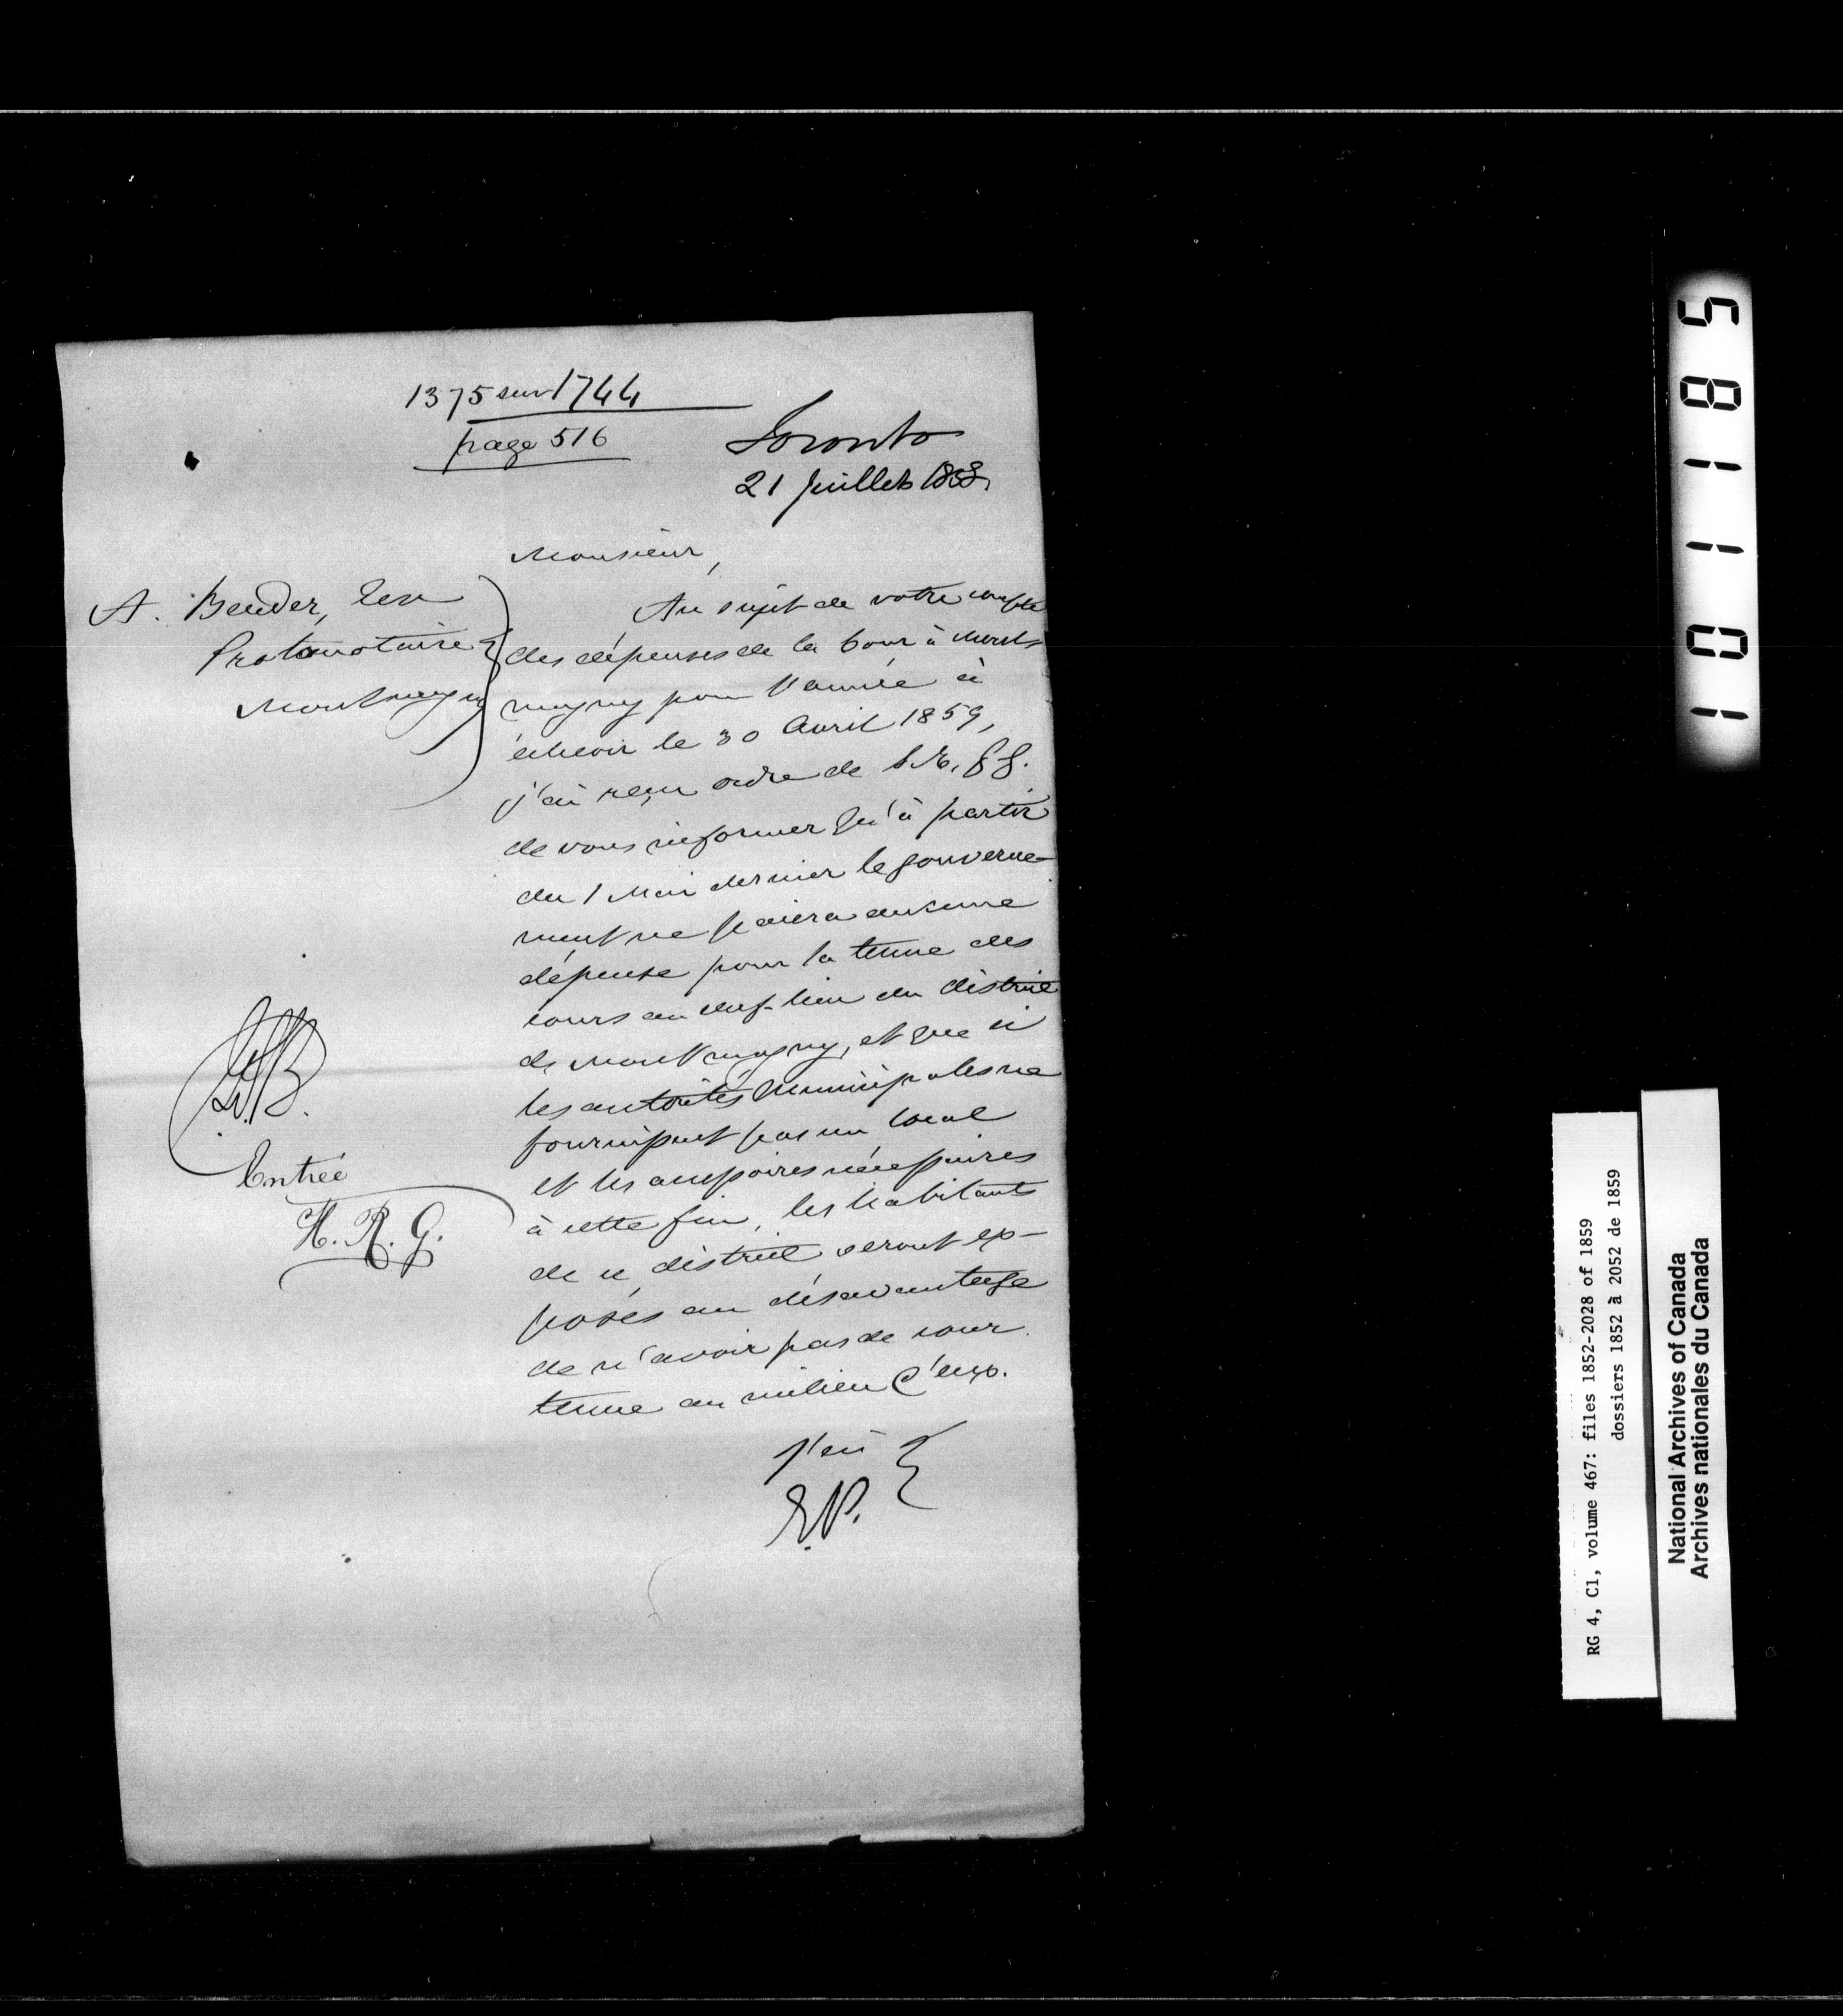 1375 sur 1744
page 516
Toronto
21 Juillet 1858
Monsieur,
A. Bender, Ecr
Protonotaire
Montmagny
Au sujet de votre compte
des dépenses de la Cour à Mont-
magny pour l'année à
échéoir le 30 Avril 1859,
j'ai reçu ordre de S. E. G G.
de vous informer qu'à partir
du 1 Mai dernier le gouverne-
ment ne paiera aucune
dépense pour la tenue des
cours au chef-lieu du district
de Montmagny, et que si
les autorités Municipales ne
fournissent pas un local
et les accessoires nécessaires
à cette fin, les habitants
de ce district seront ex-
posés au désavantage
de n'avoir pas de cour
tenue au milieu d'eux.
J'ai
E.P.
Entrée
H. R. G.
101185
RG 4, C1, volume 467: files 1852-2028 of 1859
dossiers 1852 à 2052 de 1859
National Archives of Canada
Archives nationales du Canada